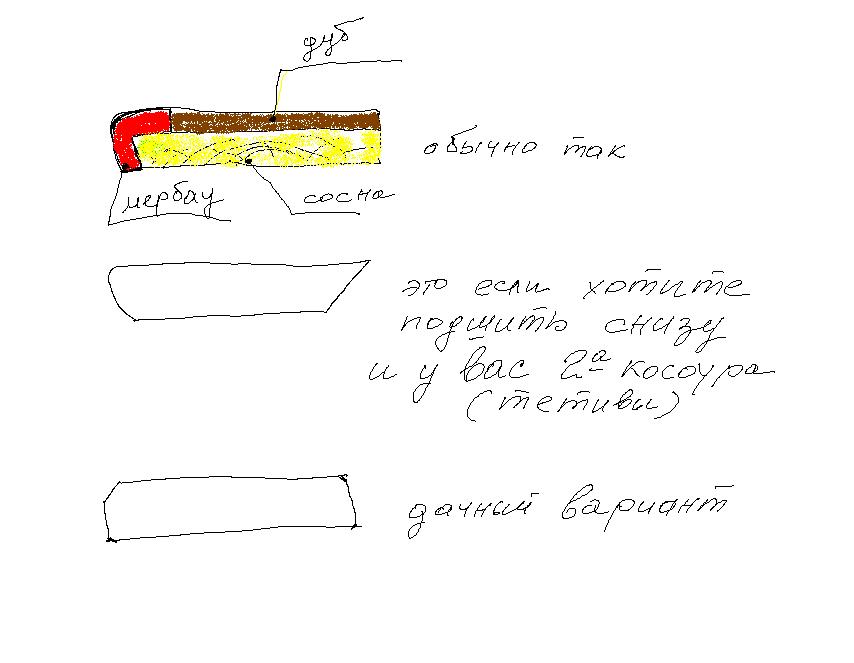 дуб
обычно так
мербау
сосна
это если хотите
подшить снизу
и у вас 2а косоура
(тетивы)
дачный вариант